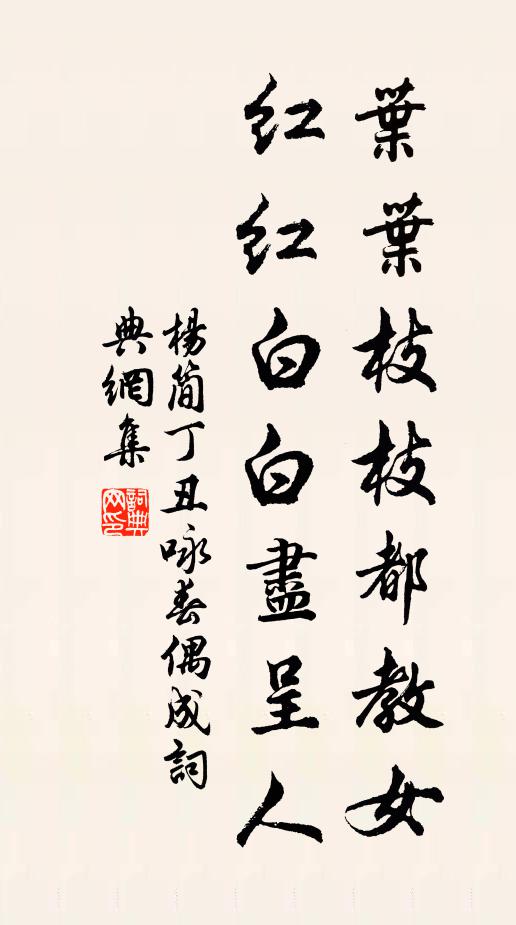 葉葉枝枝都教女
紅紅白白盡呈人
楊簡丁丑咏春偶成詞
典網集
詞典
网印